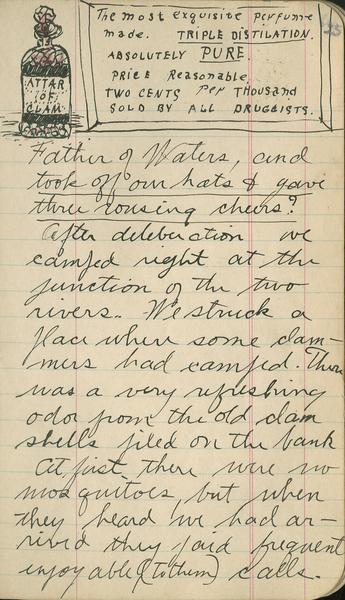 The most exquisite perfume
made. TRIPLE DISTILATION.
ABSOLUTELY PURE.
PRICE Reasonable.
TWO CENTS PER THOUSAND
SOLD BY ALL DRUGGISTS.
ATTAR
OF
CLAM
Father of Waters, and
took off our hats & gave
three rousing cheers?
After deleberation we
camped right at the
junction of the two
rivers.. We struck a
place where some clam-
mers had camped. There
was a very refreshing
odor from the old clam
shells piled on the bank
At first there were no
mosquitoes, but when
they heard we had ar-
rived they paid frequent
enjoyable (to them) calls.